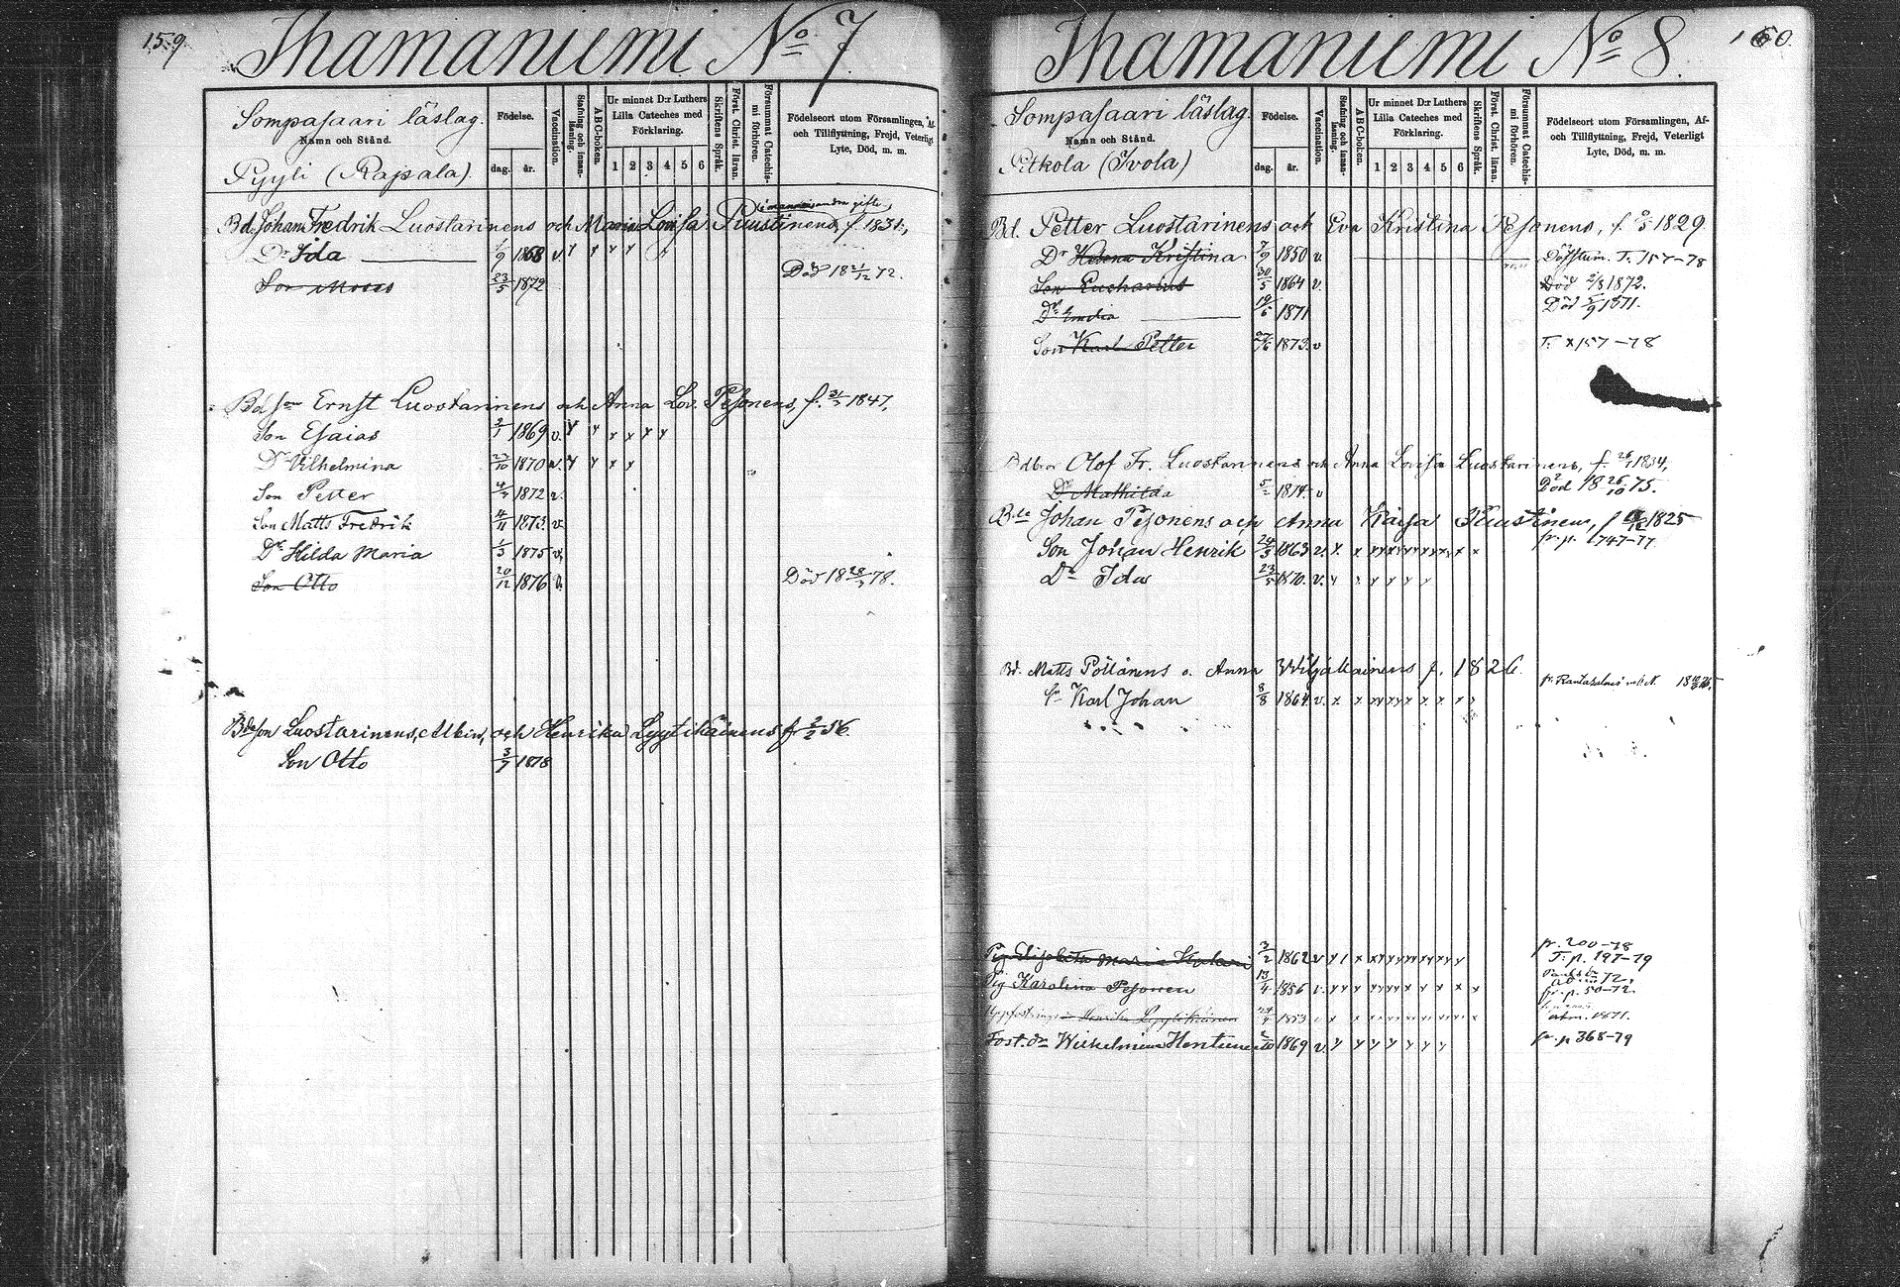 159.
Ihamaniemi No 7.
Sompasaari läslag.
Namn och Stånd.
Pyyli (Rapala).
Födelse.
dag. år.
Vaccination.
Stafning och innanläsning.
A B C-boken.
Ur minnet D:r Luthers Lilla Cateches med Förklaring.
1 2 3 4 5 6
Skriftens Språk.
Först. Christ. läran.
Försummat Catechismi förhören.
Födelseort utom Församlingen, Af- och Tillflyttning, Frejd, Veterligt Lyte, Död, m. m.
Bd. Johan Fredrik Luostarinens och Maria Lovisa Puustinens, f. 1831.,
Dr Ida 1/9 1868 v
Son Moses 23/5 1872 Död 18 21/12 72.
Bdson Ernst Luostarinens och Anna Lov. Pesonens, f. 1847,
Son Esaias 1869 v.
Dr Vilhelmina 1870 v.
Son Petter 1872 v.
Son Matts Fredrik 4/11 1873. v.
Dr Hilda Maria 1/3 1875 v.
Son Otto 20/12 1876 v. Död 18 78.
Bdeson Luostarinens, Albin, och Henrika Lyytikäinens f. 2/2 56.
Son Otto 3/7 1878
160.
Ihamaniemi No 8.
Sompasaari läslag.
Namn och Stånd.
Pitkola (Ivola)
Födelse.
dag. år.
Vaccination.
Stafning och innanläsning.
A B C-boken.
Ur minnet D:r Luthers Lilla Cateches med Förklaring.
1 2 3 4 5 6
Skriftens Språk.
Först. Christ. läran.
Försummat Catechismi förhören.
Födelseort utom Församlingen, Af- och Tillflyttning, Frejd, Veterligt Lyte, Död, m. m.
Bd. Petter Luostarinens och Eva Kristina Pesonens, f. 1829.
Dr Helena Kristina 7/9 1850 v T. 157-78
Son Zacharias 30/5 1864 v. Död 1872.
Dr Emilia 19/6 1871 Död 5/9 1871.
Son Karl Petter 1873. v T. 157-78
Bdbror Olof Fr. Luostarinens och Anna Lovisa Luostarinens, f. 1834,
Dr Mathilda 5/2 1874. v Död 18 26/10 75.
Johan Pesonens och Anna Kaisa Puustinens, f 1825
Son Johan Henrik 24/3 1863 v. fr. p. 747-77
Dr Ida 23/5 1870. v.
Bd. Matts Pöllänens o. Anna Wiljakainens f. 1826.
Sn Karl Johan 8/8 1864 v. fr. Rantasalmi
Pig. Elisabeta Maria 3/2 1862 v fr. 200-78
T. p. 197-79
Pig Karolina Pesonen 13/4 1856 v. fr. p. 50-72.
Henrika Lyytikäinen 1853 1871.
Fost. dr Wilhelmina Hentunen 1869 v. fr. p 368-79